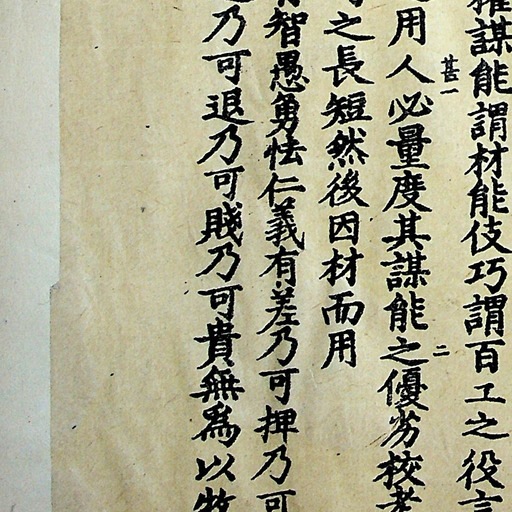 謀能謂材能伎巧謂百工之役言
用人必量度其謀能之優劣校考
甚一
二
之長短然後因材而用
智愚勇怯仁義有差乃可捭乃可
乃可退乃可賤乃可貴無為以牧